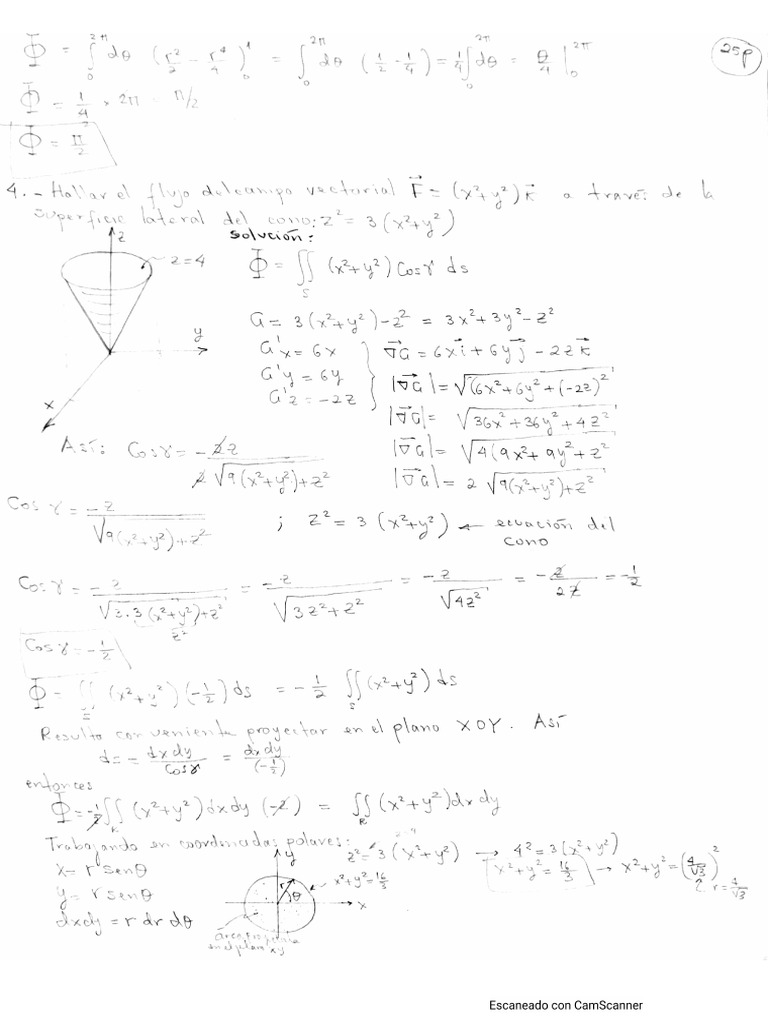 Φ = ∫₀^2π dθ (r²/2 - r⁴/4)₀¹ = ∫₀^2π dθ (1/2 - 1/4) = 1/4 ∫₀^2π dθ = θ/4 |₀^2π
25p
Φ = 1/4 * 2π = π/2
Φ = π/2
4.- Hallar el flujo del campo vectorial F⃗ = (x²+y²)k⃗ a través de la
superficie lateral del cono: z² = 3(x²+y²)
solución:
z
z=4
y
x
Φ = ∬_S (x²+y²) Cosγ ds
G = 3(x²+y²) - z² = 3x²+3y²-z²
G'x = 6x
G'y = 6y
G'z = -2z
∇G = 6x i⃗ + 6y j⃗ - 2z k⃗
|∇G| = √(6x²+6y²+(-2z)²
|∇G| = √36x²+36y²+4z²
|∇G| = √4(9x²+9y²+z²
|∇G| = 2√9(x²+y²)+z²
Así: Cosγ = -2z / 2√9(x²+y²)+z²
Cosγ = -z / √9(x²+y²)+z² ; z² = 3(x²+y²) ← ecuación del
cono
Cosγ = -z / √3·3(x²+y²)+z² = -z / √3z²+z² = -z / √4z² = -z / 2z = -1/2
z²
Cosγ = -1/2
Φ = ∬_S (x²+y²)(-1/2)ds = -1/2 ∬_S (x²+y²)ds
Resulta conveniente proyectar en el plano XOY. Así
d = - dxdy/cosγ = dxdy/(-1/2)
entonces
Φ = -1/2 ∬_R (x²+y²)dxdy (-2) = ∬_R (x²+y²)dxdy
Trabajando en coordenadas polares:
x = r senθ
y = r senθ
dxdy = r dr dθ
y
r
θ
x
x²+y²=16/3
z=4
z² = 3(x²+y²) → 4² = 3(x²+y²)
x²+y² = 16/3 → x²+y² = (4/√3)²
r = 4/√3
en el plano
xy
Escaneado con CamScanner